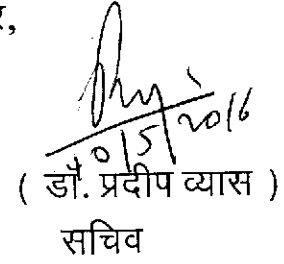 र,
10/5/2016
( डॉ. प्रदीप व्यास )
सचिव